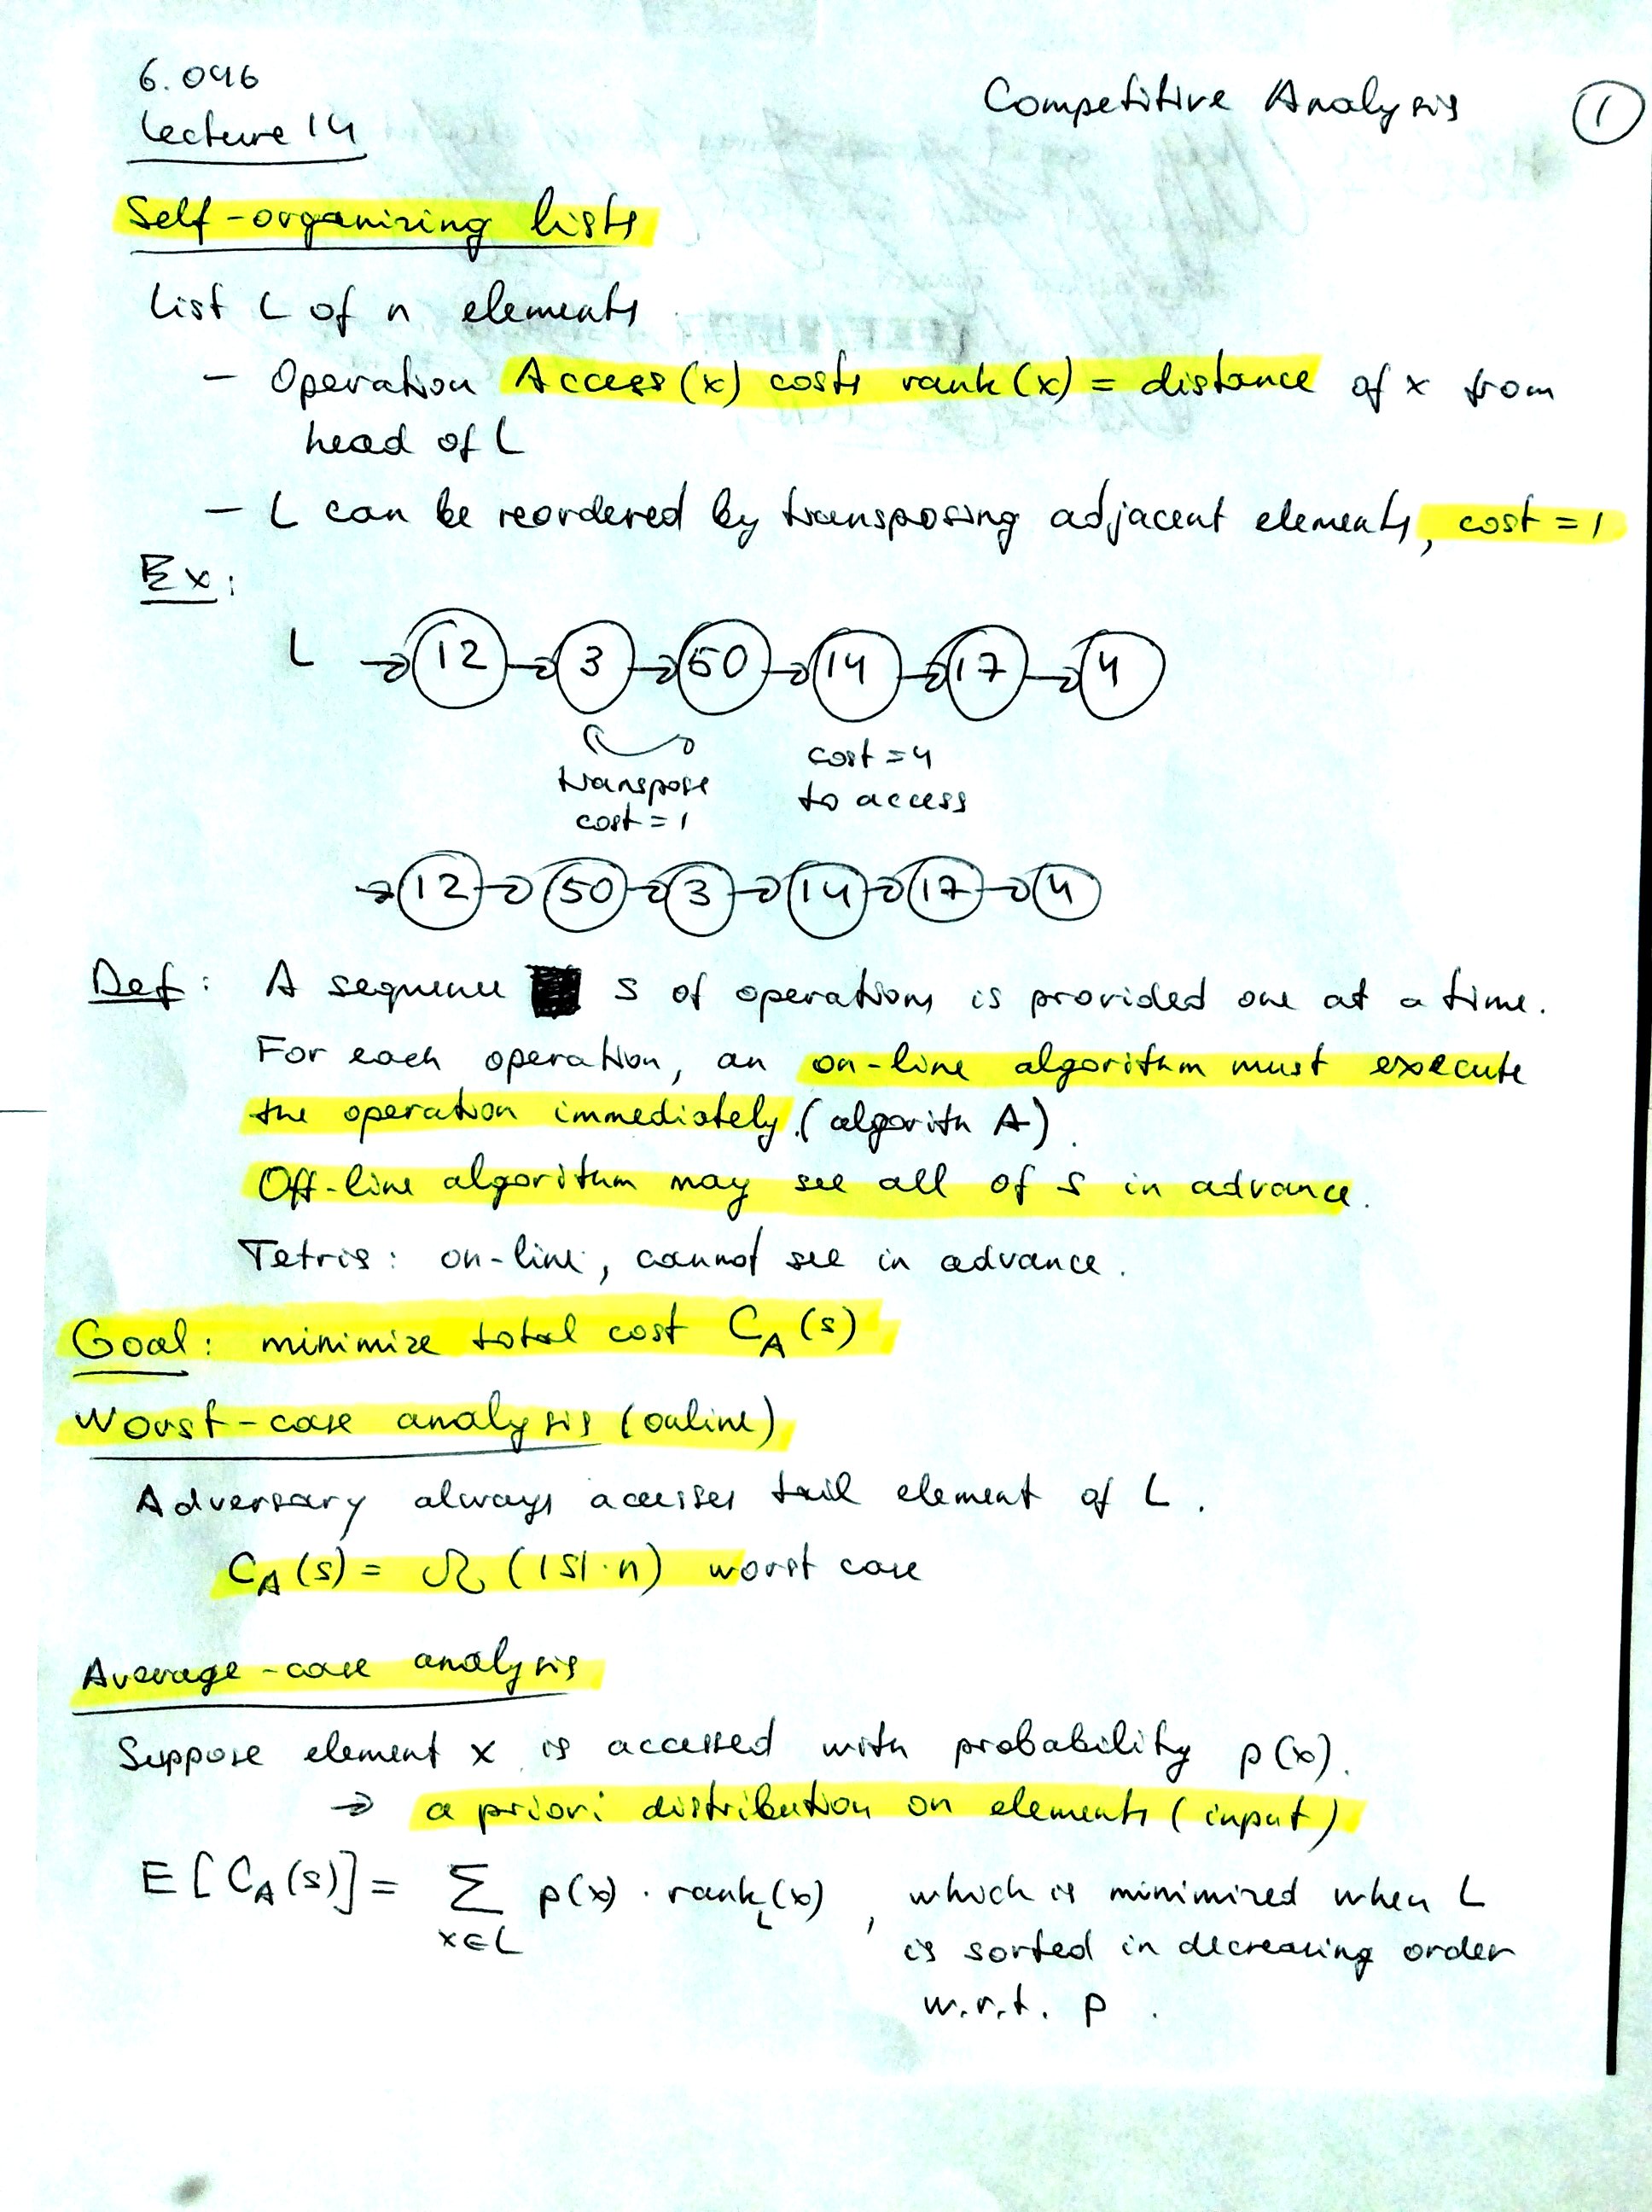 6.046
Lecture 14
Competitive Analysis
1
Self-organizing lists
List L of n elements
- Operation Access(x) costs rank(x) = distance of x from
head of L
- L can be reordered by transposing adjacent elements, cost = 1
Ex:
L → 12 → 3 → 50 → 14 → 17 → 4
transpose
cost = 1
cost = 4
to access
→ 12 → 50 → 3 → 14 → 17 → 4
Def: A sequence S of operations is provided one at a time.
For each operation, an on-line algorithm must execute
the operation immediately. (algorith A).
Off-line algorithm may see all of S in advance.
Tetris: on-line, cannot see in advance.
Goal: minimize total cost C_A(s)
Worst-case analysis (online)
Adversary always accesses tail element of L.
C_A(s) = Ω(|S|·n) worst case
Average-case analysis
Suppose element x is accessed with probability p(x).
→ a priori distribution on elements (input)
E[C_A(s)] = Σ p(x) · rank_L(x), which is minimized when L
x∈L
is sorted in decreasing order
w.r.t. p.